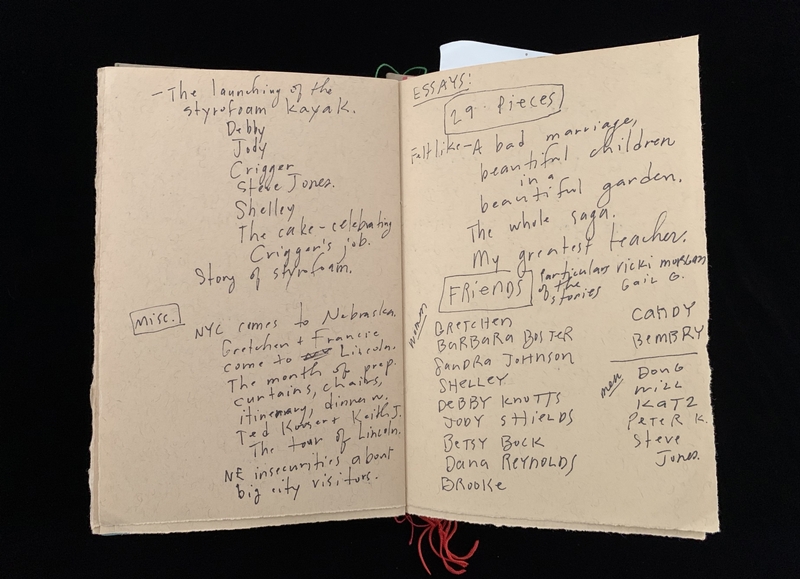 - The launching of the
styrofoam kayak.
Debby
Jody
Crigger
Steve Jones.
Shelley
The cake - celebrating
Crigger's job.
Story of styrofoam.
Misc.
NYC comes to Nebraska.
Gretchen + Francie
come to Lincoln.
The month of prep.
curtains, chairs,
itinerary, dinner w.
Ted Kooser + Keith J.
The tour of Lincoln.
NE insecurities about
big city visitors.
ESSAYS:
29 Pieces
Felt like - A bad marriage,
beautiful children
in a
beautiful garden.
The whole saga.
My greatest teacher.
FRIENDS
particulars
of the
stories
Vicki Morgan
Gail G.
women
GRETCHEN
BARBARA BOSTER
Sandra Johnson
SHELLEY
DEBBY KNUTTS
JODY SHIELDS
BETSY BOCK
Dana REYNOLDS
BROOKE
CANDY
BEMBRY
men
DOUG
Will
KATZ
PETER K.
Steve
Jones.